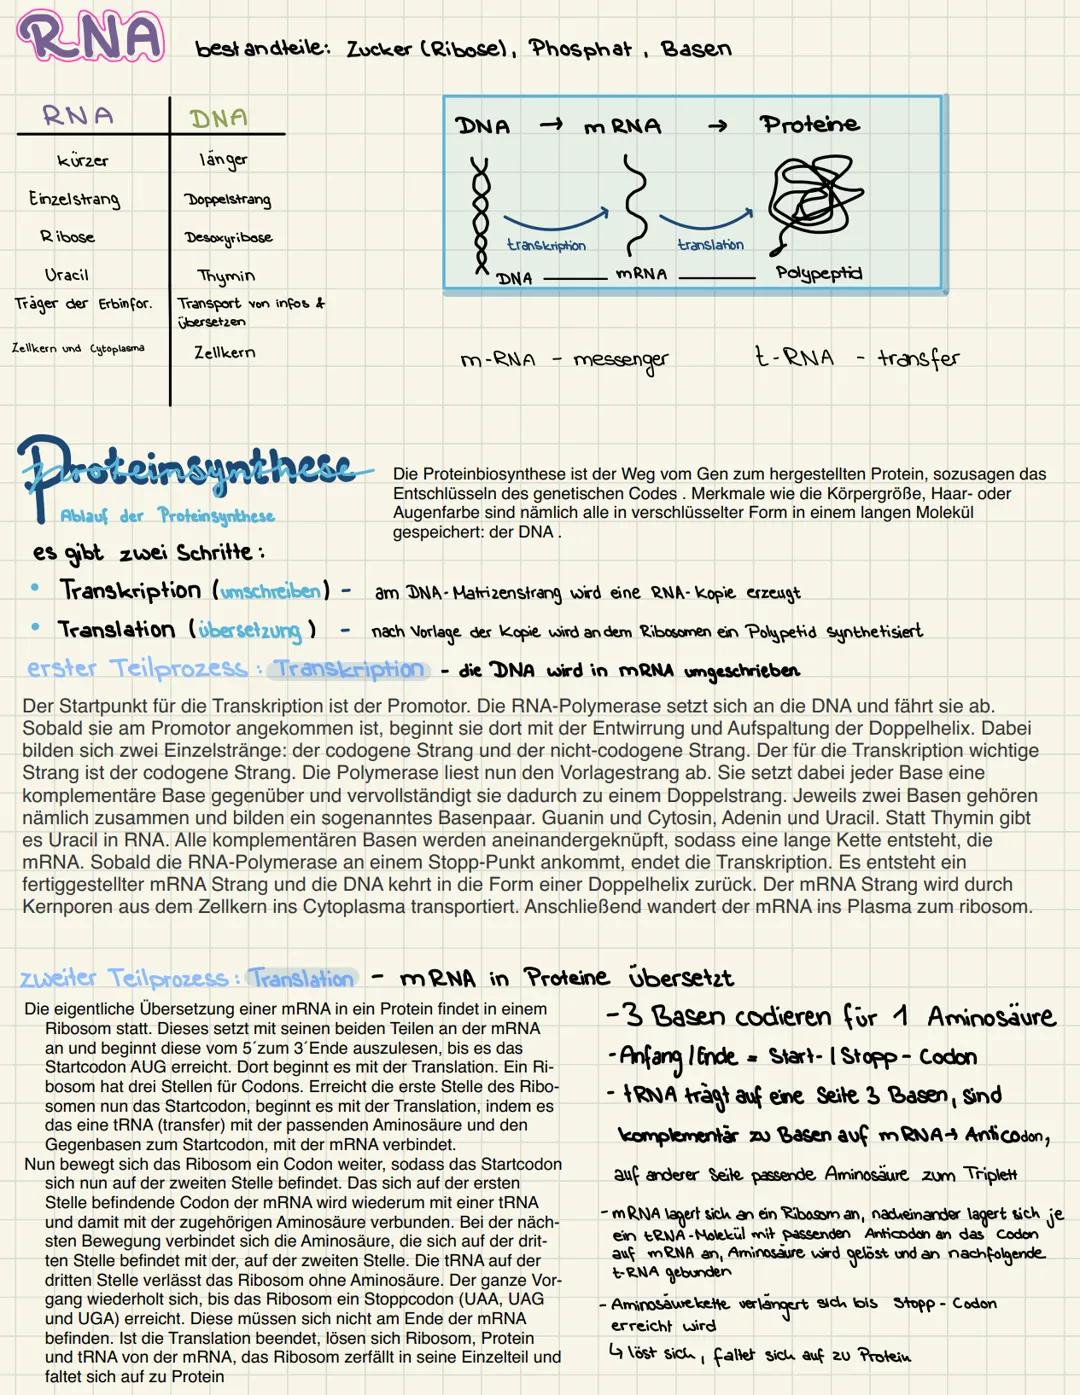 RNA
bestandteile: Zucker (Ribose), Phosphat, Basen
RNA DNA
kürzer länger
Einzelstrang Doppelstrang
Ribose Desoxyribose
Uracil Thymin
Träger der Erbinfor. Transport von infos & übersetzen
Zellkern und Cytoplasma Zellkern
DNA → mRNA → Proteine
transkription translation
DNA mRNA Polypeptid
m-RNA - messenger t-RNA - transfer
Proteinsynthese
Ablauf der Proteinsynthese
Die Proteinbiosynthese ist der Weg vom Gen zum hergestellten Protein, sozusagen das
Entschlüsseln des genetischen Codes . Merkmale wie die Körpergröße, Haar- oder
Augenfarbe sind nämlich alle in verschlüsselter Form in einem langen Molekül
gespeichert: der DNA .
es gibt zwei Schritte:
• Transkription (umschreiben) - am DNA-Matrizenstrang wird eine RNA-Kopie erzeugt
• Translation (übersetzung) - nach Vorlage der Kopie wird an dem Ribosomen ein Polypetid synthetisiert
erster Teilprozess: Transkription - die DNA wird in mRNA umgeschrieben
Der Startpunkt für die Transkription ist der Promotor. Die RNA-Polymerase setzt sich an die DNA und fährt sie ab.
Sobald sie am Promotor angekommen ist, beginnt sie dort mit der Entwirrung und Aufspaltung der Doppelhelix. Dabei
bilden sich zwei Einzelstränge: der codogene Strang und der nicht-codogene Strang. Der für die Transkription wichtige
Strang ist der codogene Strang. Die Polymerase liest nun den Vorlagestrang ab. Sie setzt dabei jeder Base eine
komplementäre Base gegenüber und vervollständigt sie dadurch zu einem Doppelstrang. Jeweils zwei Basen gehören
nämlich zusammen und bilden ein sogenanntes Basenpaar. Guanin und Cytosin, Adenin und Uracil. Statt Thymin gibt
es Uracil in RNA. Alle komplementären Basen werden aneinandergeknüpft, sodass eine lange Kette entsteht, die
mRNA. Sobald die RNA-Polymerase an einem Stopp-Punkt ankommt, endet die Transkription. Es entsteht ein
fertiggestellter mRNA Strang und die DNA kehrt in die Form einer Doppelhelix zurück. Der mRNA Strang wird durch
Kernporen aus dem Zellkern ins Cytoplasma transportiert. Anschließend wandert der mRNA ins Plasma zum ribosom.
zweiter Teilprozess: Translation - mRNA in Proteine übersetzt
Die eigentliche Übersetzung einer mRNA in ein Protein findet in einem
Ribosom statt. Dieses setzt mit seinen beiden Teilen an der mRNA
an und beginnt diese vom 5´zum 3´Ende auszulesen, bis es das
Startcodon AUG erreicht. Dort beginnt es mit der Translation. Ein Ri-
bosom hat drei Stellen für Codons. Erreicht die erste Stelle des Ribo-
somen nun das Startcodon, beginnt es mit der Translation, indem es
das eine tRNA (transfer) mit der passenden Aminosäure und den
Gegenbasen zum Startcodon, mit der mRNA verbindet.
Nun bewegt sich das Ribosom ein Codon weiter, sodass das Startcodon
sich nun auf der zweiten Stelle befindet. Das sich auf der ersten
Stelle befindende Codon der mRNA wird wiederum mit einer tRNA
und damit mit der zugehörigen Aminosäure verbunden. Bei der näch-
sten Bewegung verbindet sich die Aminosäure, die sich auf der drit-
ten Stelle befindet mit der, auf der zweiten Stelle. Die tRNA auf der
dritten Stelle verlässt das Ribosom ohne Aminosäure. Der ganze Vor-
gang wiederholt sich, bis das Ribosom ein Stoppcodon (UAA, UAG
und UGA) erreicht. Diese müssen sich nicht am Ende der mRNA
befinden. Ist die Translation beendet, lösen sich Ribosom, Protein
und tRNA von der mRNA, das Ribosom zerfällt in seine Einzelteil und
faltet sich auf zu Protein
-3 Basen codieren für 1 Aminosäure
-Anfang/Ende = Start-/Stopp-Codon
- tRNA trägt auf eine Seite 3 Basen, sind
komplementär zu Basen auf mRNA→ Anticodon,
auf anderer Seite passende Aminosäure zum Triplett
- mRNA lagert sich an ein Ribosom an, nacheinander lagert sich je
ein tRNA-Molekül mit passenden Anticodon an das Codon
auf mRNA an, Aminosäure wird gelöst und an nachfolgende
t-RNA gebunden
- Aminosäurekette verlängert sich bis Stopp-Codon
erreicht wird
↳ löst sich, faltet sich auf zu Protein